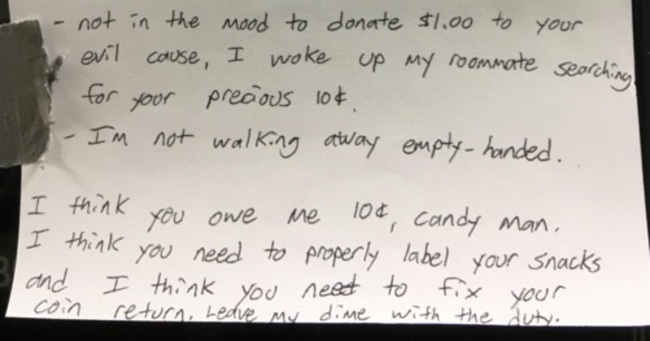 - not in the mood to donate $1.00 to your
evil cause, I woke up my roommate searching
for your precious 10¢.
- I'm not walking away empty-handed.
I think you owe me 10¢, candy man.
I think you need to properly label your snacks
and I think you need to fix your
coin return. Leave my dime with the duty.